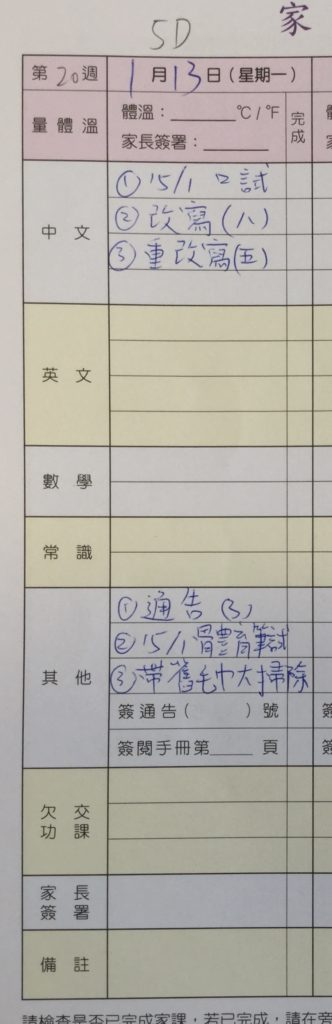 5D
家
第20週 1月13日(星期一)
量體溫 體溫：______°C/°F 完成
家長簽署：______
中文 ①15/1 口試
②改寫(八)
③重改寫(五)
英文
數學
常識
其他 ①通告(3)
②15/1體育筆試
③帶舊毛巾大掃除
簽通告( )號
簽閱手冊第____頁
欠交功課
家長簽署
備註
請檢查是否已完成家課，若已完成，請在旁